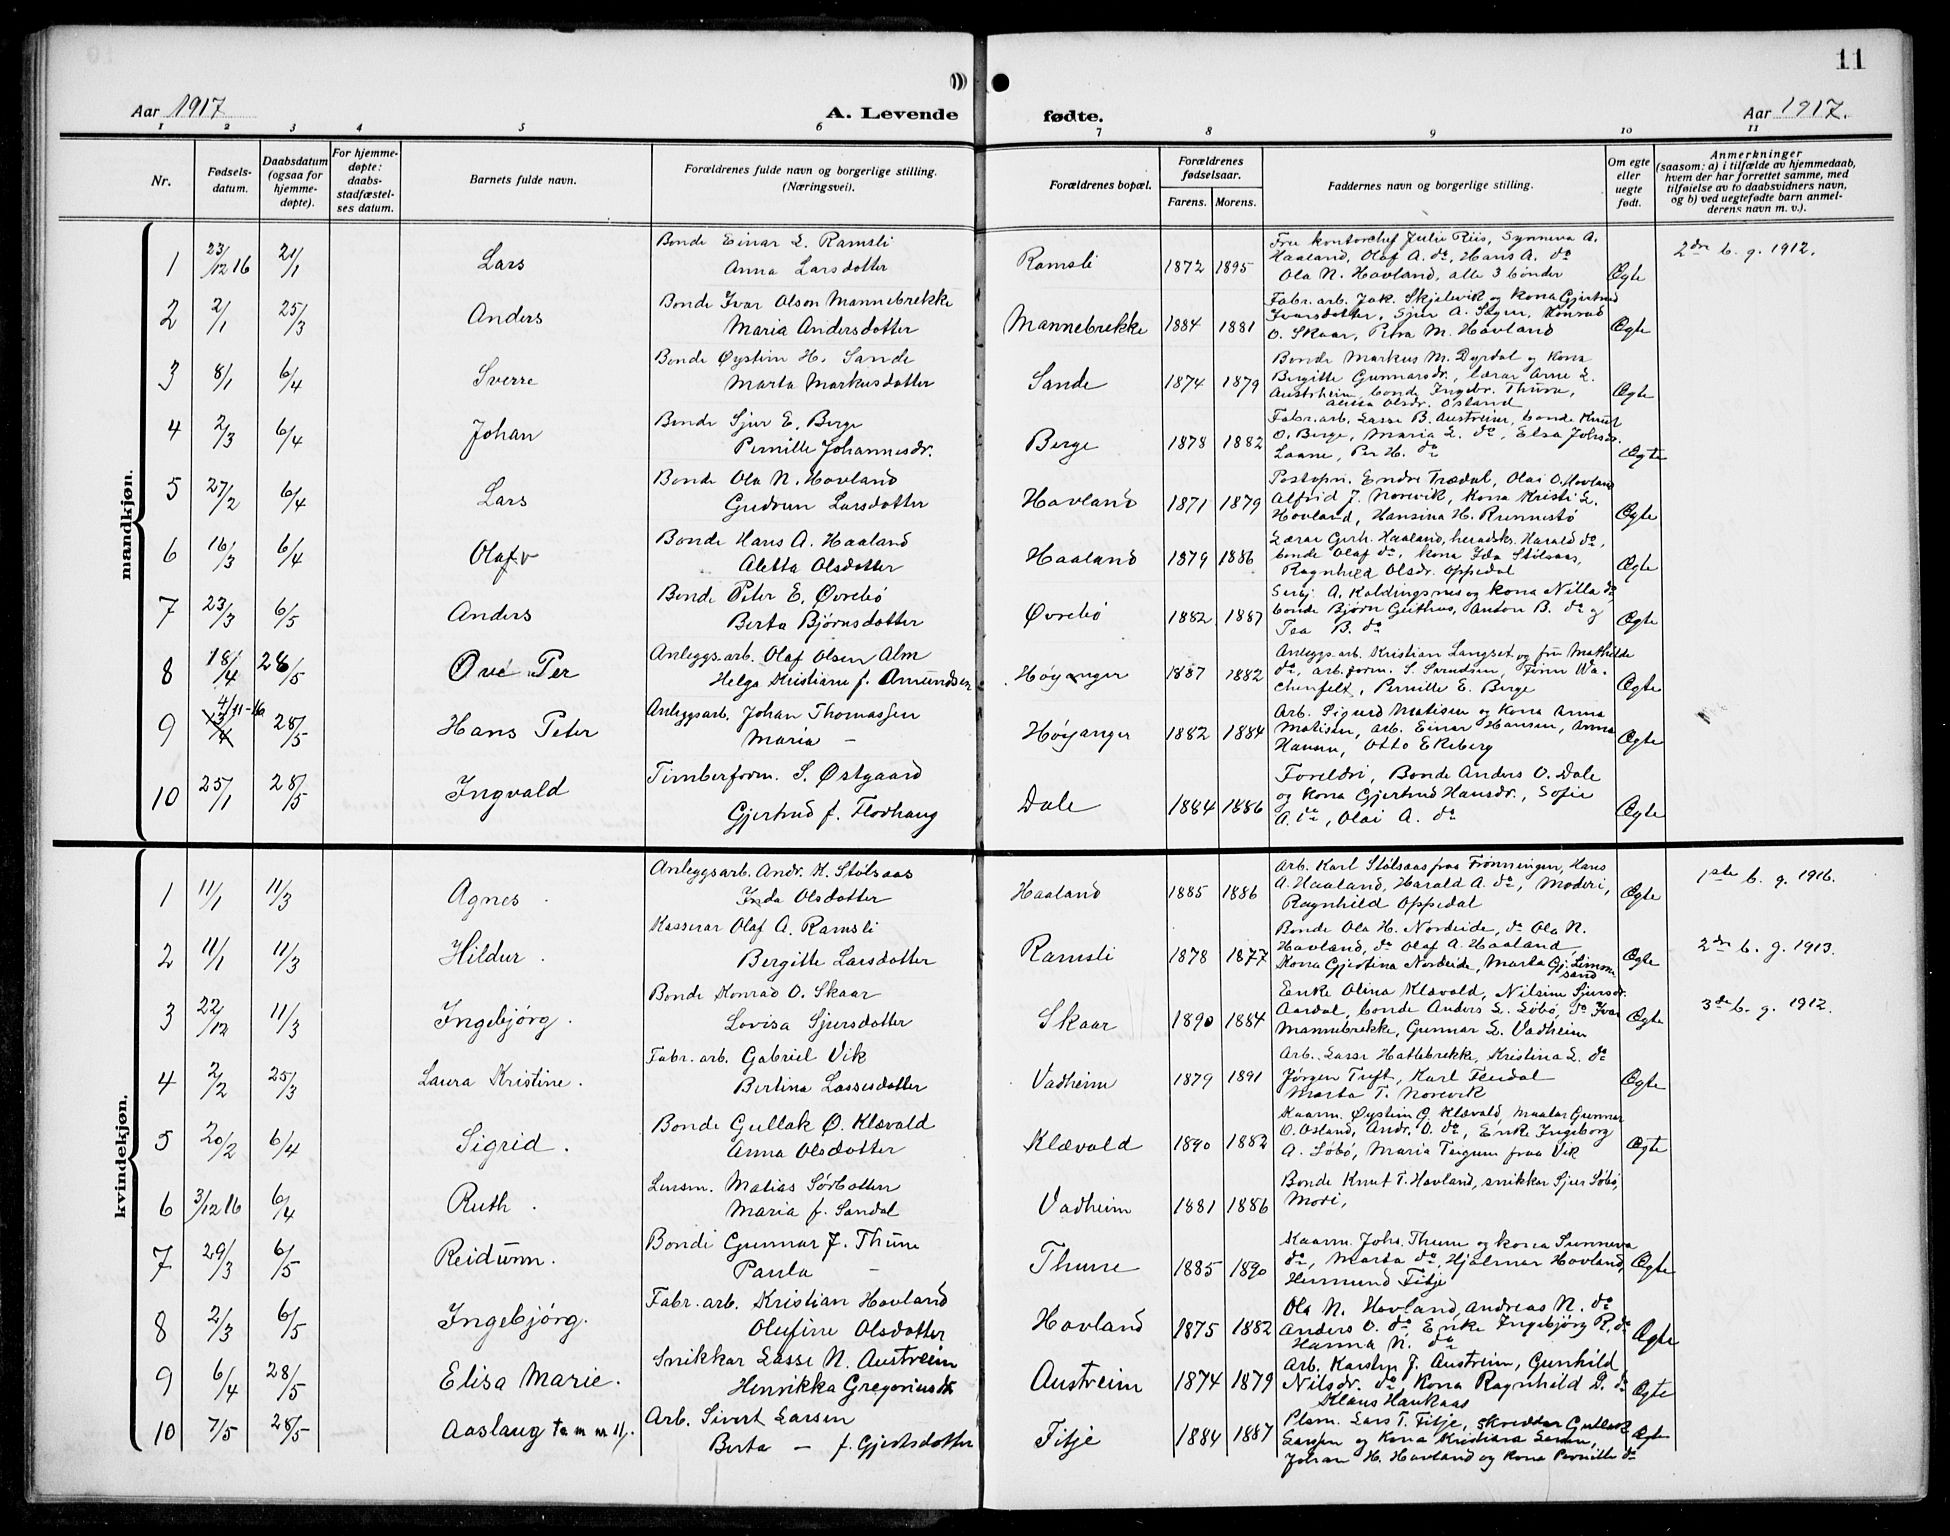 11
Aar 1917
A. Levende
fødte.
Aar 1917.
1 2 3 4 5 6 7 8 9 10 11
Nr.
Fødsels-
datum.
Daabsdatum
(ogsaa for
hjemme-
døpte).
For hjemme-
døpte:
daabs-
stadfæstel-
ses datum.
Barnets fulde navn.
Forældrenes fulde navn og borgerlige stilling.
(Næringsvei).
Forældrenes bopæl.
Forældrenes
fødselsaar.
Farens. Morens.
Faddernes navn og borgerlige stilling.
Om egte
eller
uegte
født.
Anmerkninger
(saasom: a) i tilfælde av hjemmedaab,
hvem der har forrettet samme, med
tilføielse av to daabsvidners navn,
og b) ved uegtefødte barn anmel-
derens navn m. v.).
mandkjøn.
1 23/12 16 21/1 Lars
Bonde Einar L. Ramsli
Anna Larsdotter
Ramsli 1872 1895
Fru kontorchef Julie Riis, Synneva A.
Haaland, Olaf A. do, Hans A. do
Ola N. Hovland, alle 3 bønder
Ægte
2dre b. g. 1912.
2 2/1 25/3 Anders
Bonde Ivar Olson Mannebrekke
Maria Andersdotter
Mannebrekke 1884 1881
Fabr. arb. Jak. Skjelevik og kona Gjertrud
Ivarsdotter, Sjur A. Konrad
O. Skaar, M. Hovland
Ægte
3 8/1 6/4 Sverre
Bonde Øystein H. Sande
Marta Markusdotter
Sande 1874 1879
Bonde Markus M. Dyrdal og kona
Bergitte Gunnarsdr., lærar Arne L.
Austrheim, bonde Ingebr. Thune,
Anna Olsdr. Osland
Ægte
4 2/3 6/4 Johan
Bonde Sjur E. Berge
Pernille Johannesdr.
Berge 1878 1882
Fabr. arb. Lasse B. Austreim, bonde Knut
O. Berge, Maria L. do, Elsa Johsdr.
Laane, Per H. do
Ægte
5 27/2 6/4 Lars
Bonde Ola N. Hovland
Gudrun Larsdotter
Hovland 1871 1879
Postopn. Endre Trædal, Olai O. Hovland
Alfrid J. Norevik, kona Kristi L.
Hovland, Hansina H. Runnestø
Ægte
6 16/3 6/4 Olav
Bonde Hans A. Haaland
Aletta Olsdotter
Haaland 1879 1886
Lærar Gerh. Haaland, heradsk. Harald do,
bonde Olaf do, kona Ida Stølsaas,
Ragnhild Olsdr. Oppedal
Ægte
7 23/3 6/5 Anders
Bonde Peter E. Øvrebø
Berta Bjørnsdotter
Øvrebø 1882 1887
A. Koldingsnes og kona Nilla do
bonde Bjørn Geithus, Anton B. do og
Tea B. do
Ægte
8 18/4 28/5 Ove Per
Anleggsarb. Olaf Olsen Alm
Helga Kristiane f. Amundsen
Høyanger 1887 1882
Anleggsarb. Kristian Langset og fru Mathilde
do, arb. form. S. Svendsen, Finn Wa-
chenfelt, Pernille E. Berge
Ægte
9 4/11-16 28/5 Hans Peter
Anleggsarb. Johan Thomassen
Maria —
Høyanger 1882 1884
Arb. Sigurd Matisen og kona Anna
Matisen, Arb. Einar Hansen, Anna
Hansen, Otto Ekeberg
Ægte
10 25/1 28/5 Ingvald
Timberform. S. Østgaard
Gjertrud f. Flodhaug
Dale 1884 1886
Foreldri, Bonde Anders O. Dale
og kona Gjertrud Hansdr., Sofie
A. do, Olai A. do
Ægte
kvindekjøn.
1 11/1 11/3 Agnes.
Anleggsarb. Andr. K. Stølsaas
Ida Olsdotter
Haaland 1885 1886
Arb. Karl Stølsaas fraa Frønningen, Hans
A. Haaland, Harald A. do, Moderi,
Ragnhild Oppedal
Ægte
1ste b. g. 1916.
2 11/1 11/3 Hildur.
Kasserar Olaf A. Ramsli
Bergitte Larsdotter
Ramsli 1878 1877
Bonde Ola H. Nordeide, do Ola N.
Hovland, do Olaf A. Haaland,
Kona Gjertina Nordeide, Marta Gj. Simon
sand
Ægte
2dre b. g. 1913.
3 22/12 11/3 Ingebjørg.
Bonde Konrad O. Skaar
Lovisa Sjursdotter
Skaar 1890 1884
Enke Olina Klævold, Nilsine Sjursdr.
Aardal, bonde Anders L. Søbø, do Ivar
Mannebrekke, Gunnar L. Vadheim
Ægte
3de b. g. 1912.
4 2/2 25/3 Laura Kristine.
Fabr. arb. Gabriel Vik
Bertina Lassesdotter
Vadheim 1879 1891
Arb. Lasse Hattebrekke, Kristina L. do
Jørgen Tuft, Karl Feidal
Marta T. Norevik
Ægte
5 20/2 6/4 Sigrid.
Bonde Gullak Ø. Klævold
Anna Olsdotter
Klævold 1890 1882
Kaarm. Øystein G. Klævold, Maalar Gunnar
O. Osland, Andr. O. do, Enke Ingeborg
A. Søbø, Maria Teigum fraa Vik
Ægte
6 3/12 16 6/4 Ruth.
Lensm. Matias Sørbotten
Maria f. Sandal
Vadheim 1881 1886
Bonde Knut T. Hovland, snikkar Sjur Søbø,
Mori,
7 29/3 6/5 Reidunn.
Bonde Gunnar J. Thune
Paula —
Thune 1885 1890
Kaarm. Johs. Thune og kona Sunneva
do, Marta do, Hjalmar Hovland,
Hermund Fitje
Ægte
8 2/3 6/5 Ingebjørg.
Fabr. arb. Kristian Hovland
Olufine Olsdotter
Hovland 1875 1882
Ola N. Hovland, Andreas N. do
Anders O. do, Enke Ingebjørg R. do
Hanna N. do
Ægte
9 6/4 28/5 Elisa Marie.
Snikkar Lasse N. Austreim
Henrikka Gregoriusdtr
Austreim 1874 1879
Arb. Karsten J. Austreim, Gunhild
Nilsdr. do, Kona Ragnhild D. do
Klaus Haukaas
Ægte
10 7/5 28/5 Aaslaug
Arb. Sivert Larsen
Berta — f. Gjertsdotter
Fitje 1884 1887
Plsm. Lars T. Fitje, Skreddar Gullack
Larsen og kona Kristiana Larsen,
Johan H. Hovland og kona Pernille do
Ægte